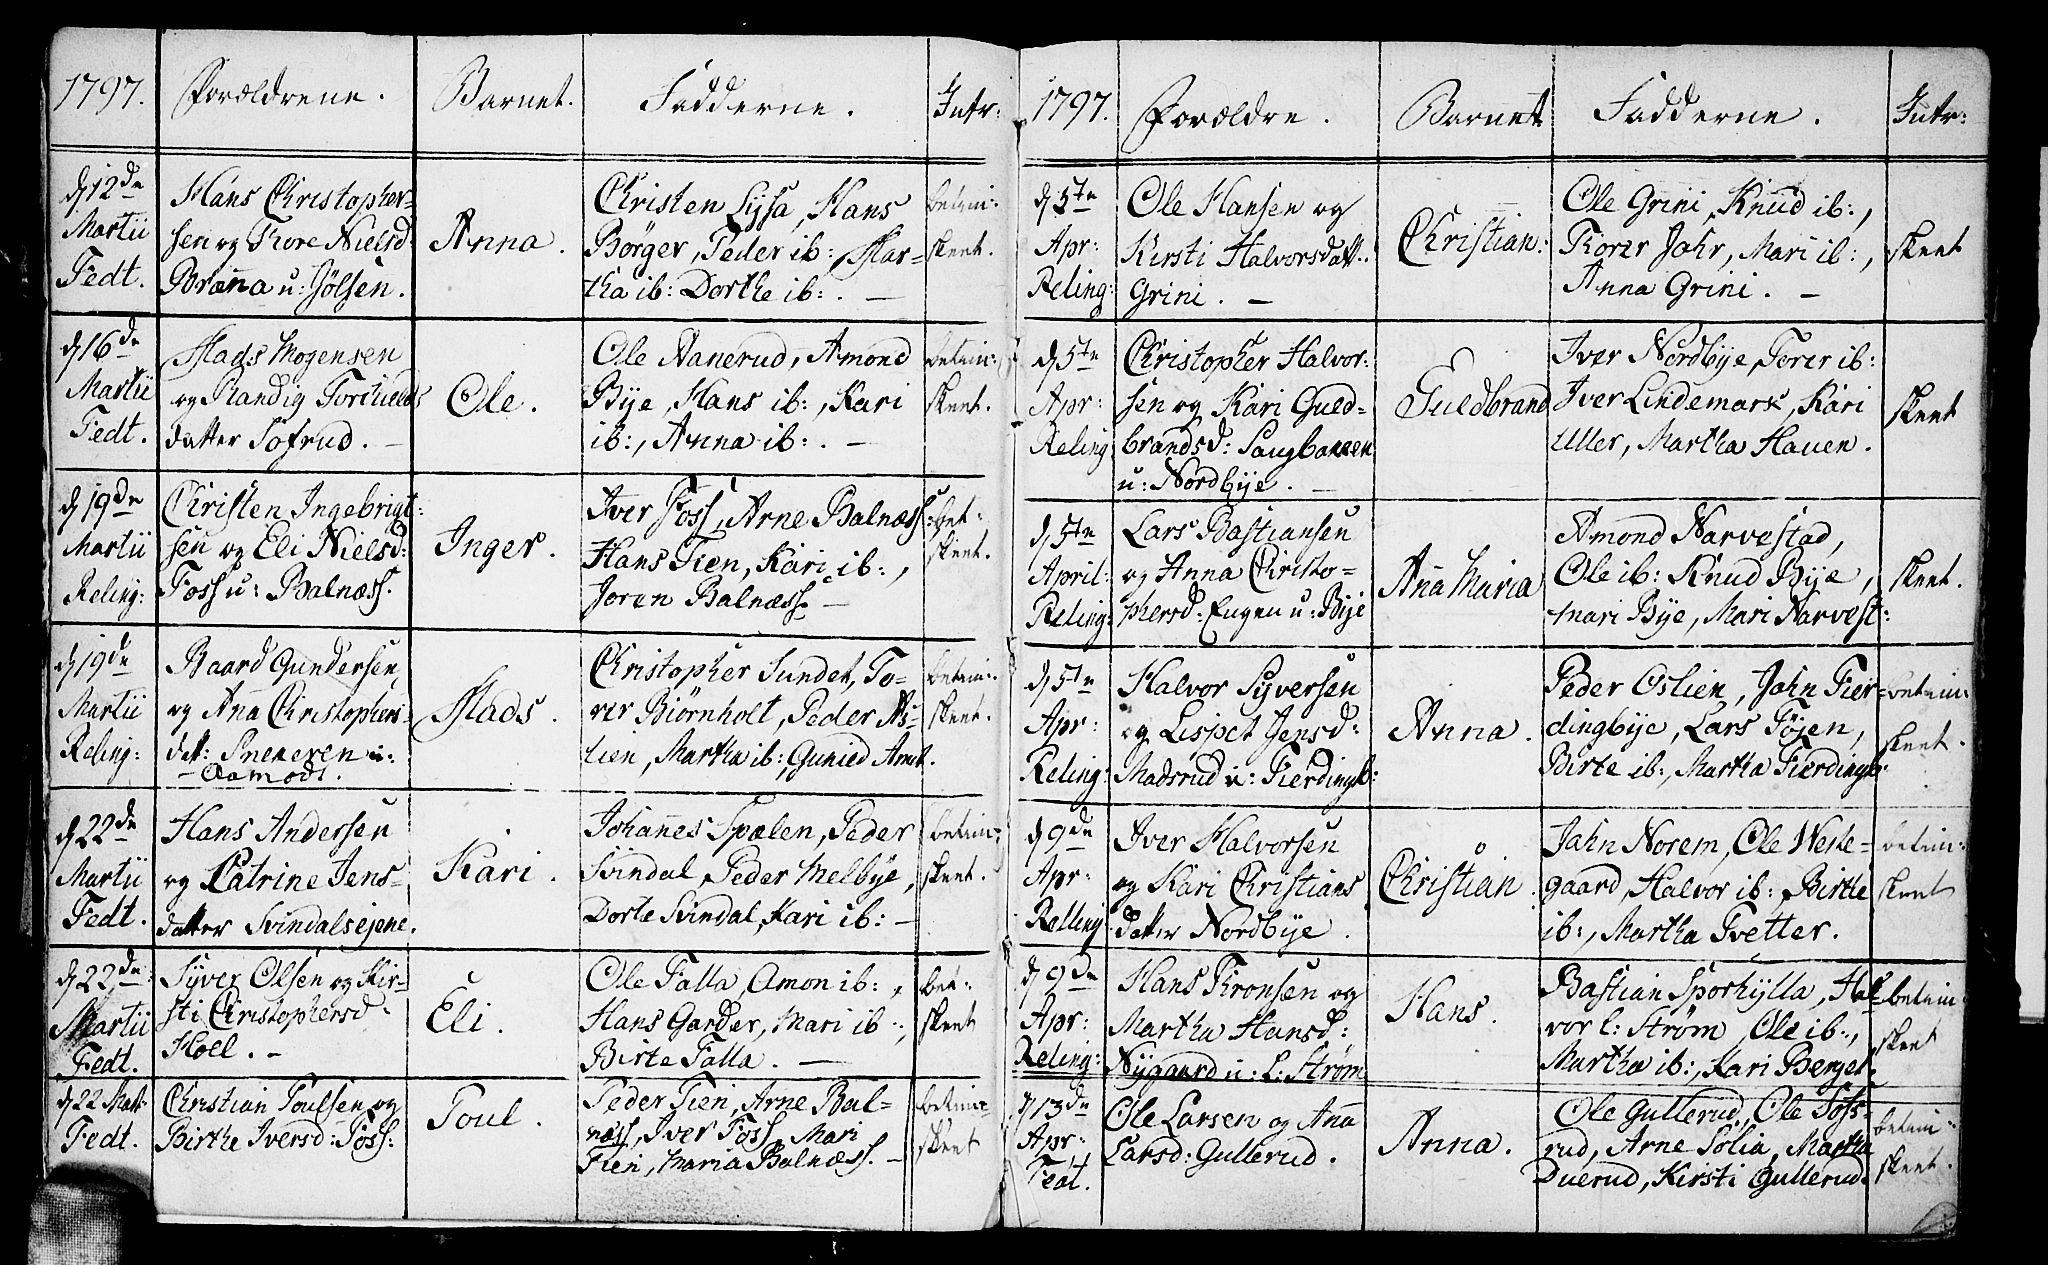 1797. Forældrene. Barnet. Fadderne. Intr:
d 12de Martii Fedt.
Hans Christopher-
sen og Thore Nielsd:
Brænna u: Jølsen.
Anna.
Christen Lysa, Hans
Børger, Peder ib: Mar-
tha ib: Dorthe ib:. —
betim:
skeet.
d 16de Martii Fedt.
Mads Mogensen
og Randig Torkields
datter Sofrud. —
Ole.
Ole Aanerud, Amond
Bÿe, Hans ib:, Kari
ib:, Anna ib:. —
betim:
skeet.
d 19de Martii Reling:
Christen Ingebrigt-
sen og Eli Nielsd:
Foss u: Balnæss.
Inger.
Iver Foss, Arne Balnæss:
Hans Tien, Kari ib:,
Joren Balnæss. —
bet:
skeet.
d 19de Martii Reling:
Baard Gundersen,
og Anna Christophers-
datt: Sneveren u:
— Aamodt.
Mads.
Christopher Sundet, To-
rer Biørnholt, Peder As-
lien, Martha ib:, Gunild Amt.
betim:
skeet.
d 22de Martii Fedt.
Hans Andersen
og Catrine Jens-
datter Svindalsejene.
Kari.
Johannes Spælen, Peder
Svindal, Peder Melbÿe,
Dorte Svindal, Kari ib: —
betim:
skeet.
d 22de Martii Fedt.
Sÿver Olsen og Kir-
sti Christophersd:
Holl. —
Eli.
Ole Falla, Amon ib:,
Hans Garder, Mari ib:,
Birte Falla. —
bet:
skeet
d 22 Mart: Fedt.
Christian Poulsen og
Birthe Iversd: Foss:
Poul.
Peder Tien, Arne Bal-
næss, Iver Foss, Mari
Tien, Maria Balnæss. —
betim:
skeet
1797. Forældre. Barnet Fadderne. Intr:
d 5te Apr: Reling:
Ole Hansen og
Kirsti Halvorsdatt:
Grini. —
Christian:
Ole Grini, Knud ib:,
Torer Jahr, Mari ib:,
Anna Grini. —
skeet
d 5te Apr: Reling
Christopher Halvor-
sen og Kari Guld-
brandsd: Saugbanken
u: Nordbÿe. —
Guldbrand
Iver Nordbÿe, Torer ib:
Iver Lindemark, Kari
Uller, Martha Hauen.
skeet
d 5te April: Reling:
Lars Bastiansen
og Anna Christo-
phersd: Engen u: Bÿe
Anna Maria
Amond Narvestad,
Ole ib: Knud Bÿe,
Mari Bÿe, Mari Narvest:
skeet.
d 5te Apr: Reling:
Halvor Sÿversen
og Lispet Jensd:
Madsrud u: Fierdingb:
Anna.
Peder Oslien, John Fier-
dingbÿe, Lars Tøjen,
Birte ib:, Martha Fierdingb:
betim:
skeet.
d 9de Apr: Relling
Iver Halvorsen
og Kari Christians
datter Nordbÿe.
Christian.
Jahn Norem, Ole Weste-
gaard, Halvor ib: Birthe
ib:, Martha Tvetter.
betim:
skeet
d 9de Apr: Reling:
Hans Tronsen og
Martha Hansd:
Nÿgaard u: L: Strøm
Hans.
Bastian Sporkÿlla, Hal-
vor l: Strøm, Ole ib:,
Martha ib:, Kari Berget.
betim
skeet
d 13de Apr: Fedt.
Ole Larsen og Anna
Larsd: Gullerud.
Anna.
Ole Gullerud, Ole Foss-
rud, Arne Solia, Martha
Duerud, Kirsti Gullerud.
betim:
skeet.